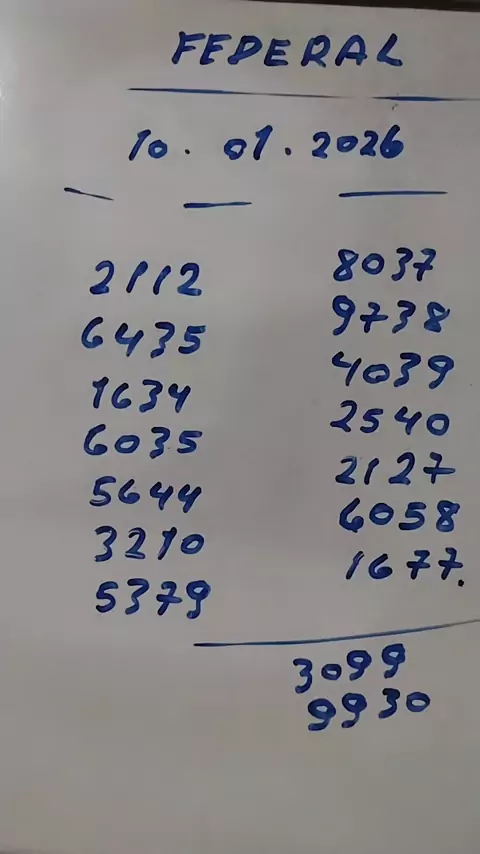 FEDERAL
10. 01. 2026
2112 8037
6435 9738
1634 4039
6035 2540
5644 2127
3210 6058
5379 1677.
3099
9930